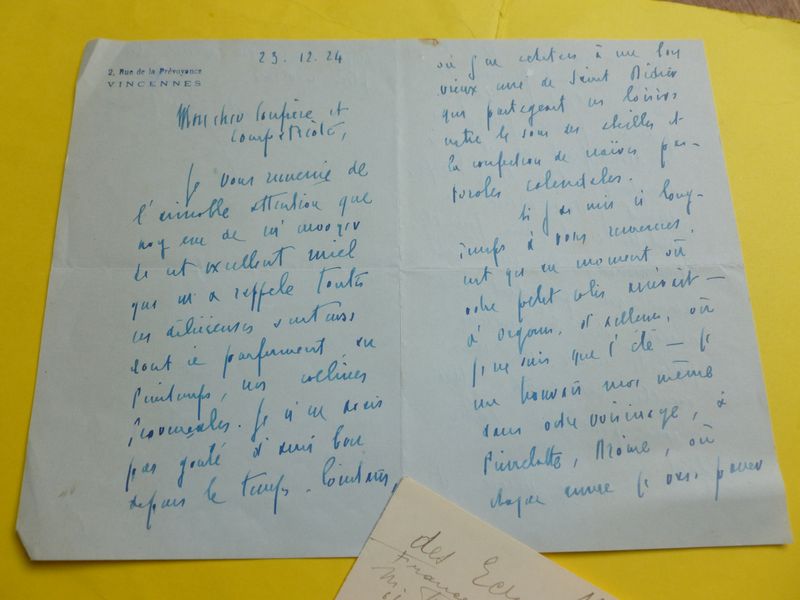 23.12.24
2, Rue de la Prévoyance
VINCENNES
Mon cher confrère et
compatriote,
Je vous remercie de
l'aimable attention que
vous de m'envoyer
de cet excellent miel
qui m'a rappelé toutes
ces délicieuses senteurs
dont se parfument au
Printemps, nos collines
Provençales. Je n'en avais
pas goûté d'aussi bon
depuis le temps, lointain,
où j'en achetais à un bon
vieux curé de Saint Didier
qui partageait ses loisirs
entre le soin des abeilles et
la confection de naïves pas-
torales calendales.
Si j'ai mis si long-
temps à vous remercier,
c'est qu'au moment où
votre petit colis arrivait —
à Orgon, d'ailleurs, où
je ne suis que l'été — je
me trouvais moi même
dans votre voisinage, à
Pierrelatte, Drôme, où
chaque année je vais passer
des